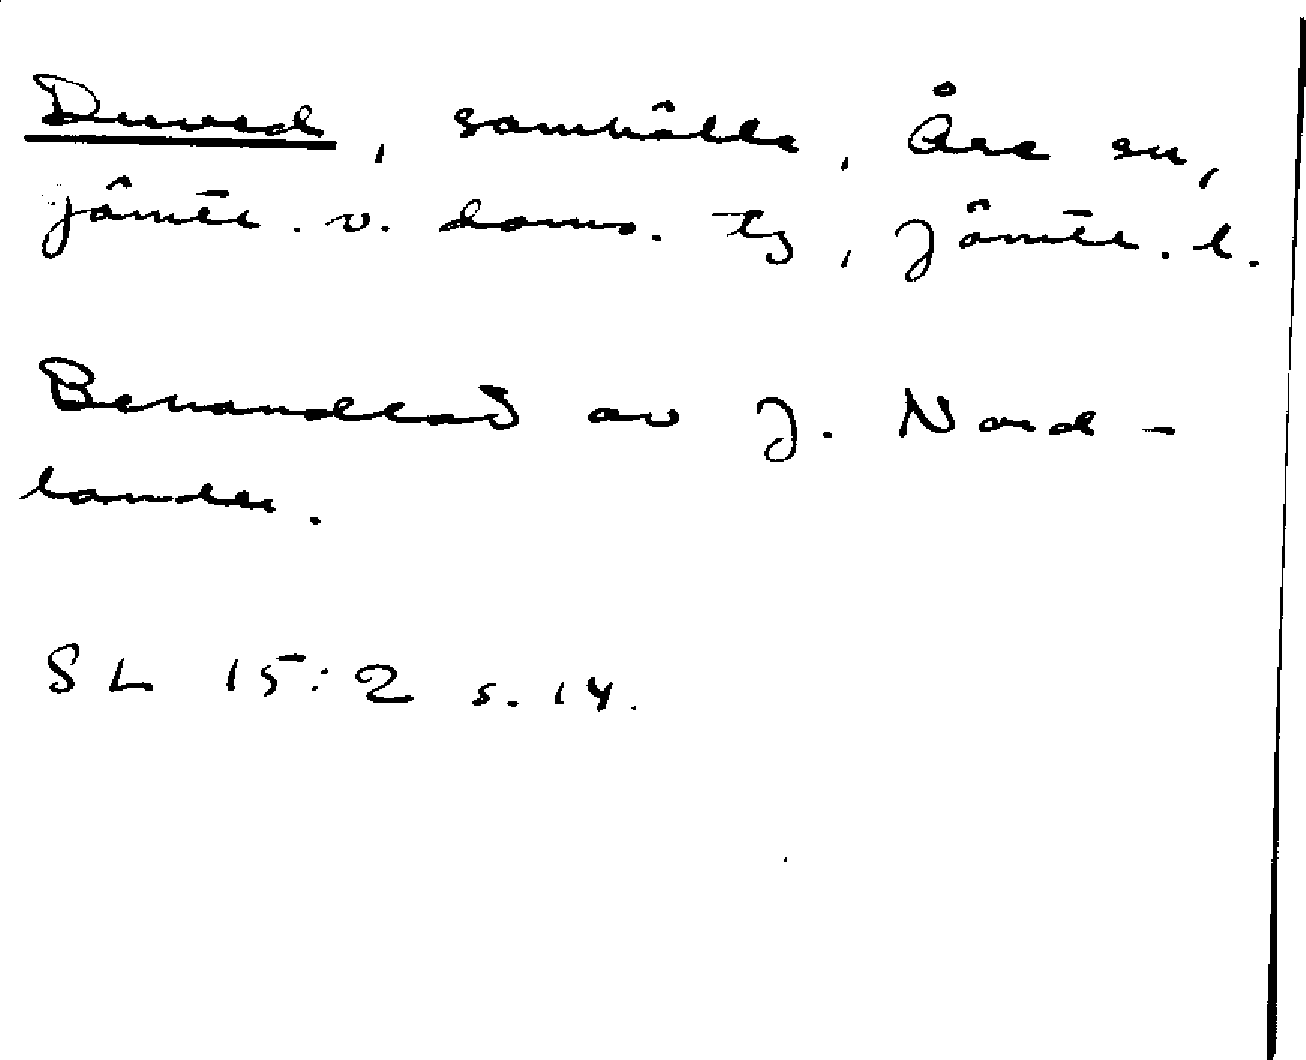 Duved, samhälle, Åre sn,
Jämtl. v. doms. tg, Jämtl. l.
Behandlad av J. Nord-
lander.
SL 15:2 s. 14.